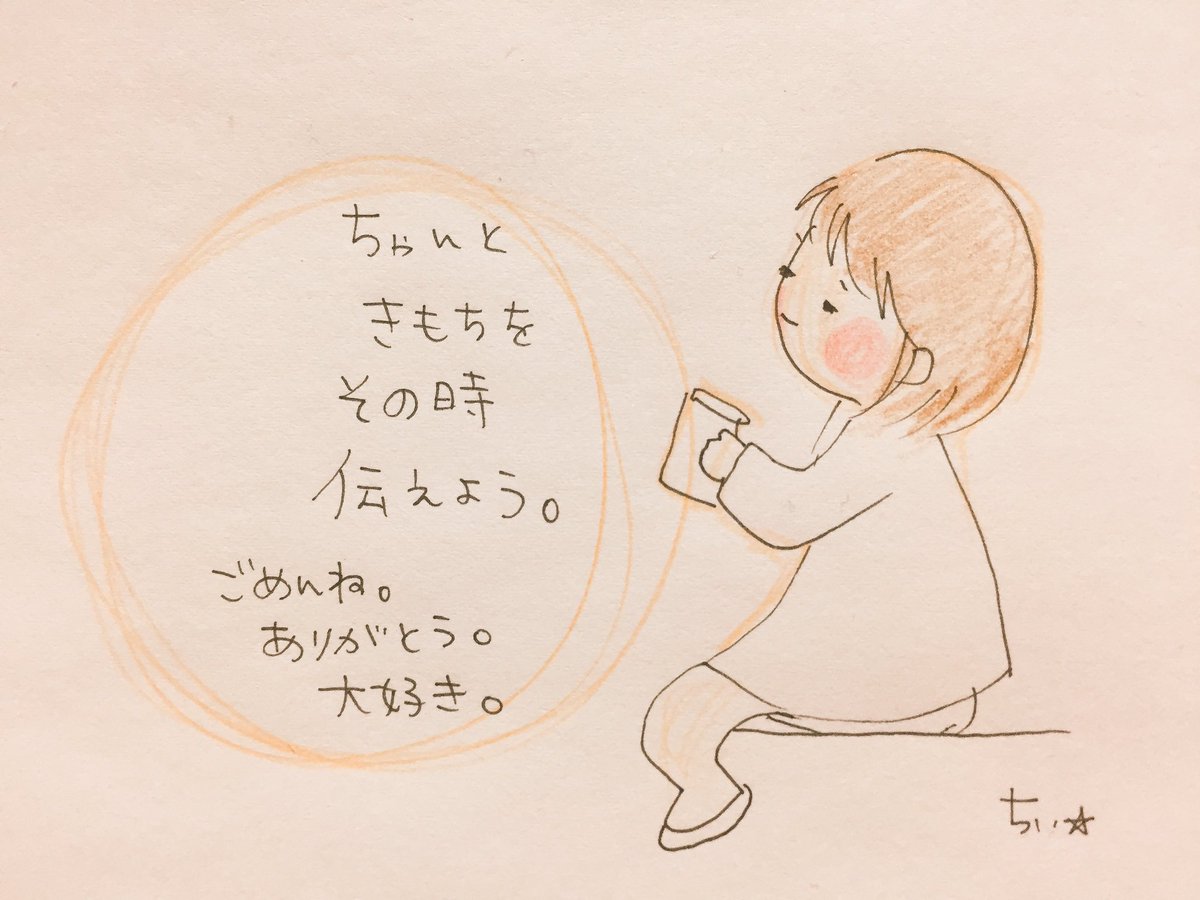 ちゃんと
きもちを
その時
伝えよう。
ごめんね。
ありがとう。
大好き。
ちぃ☆